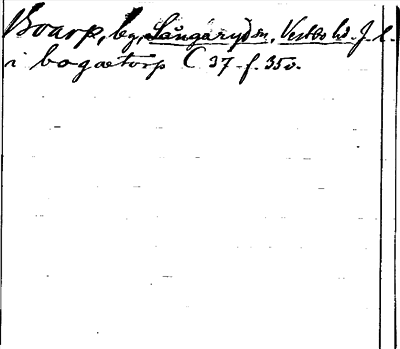 Boarp, by, Långaryd sn, Vestbo hd. J. l.
i bogætorp C 37 f. 35v.